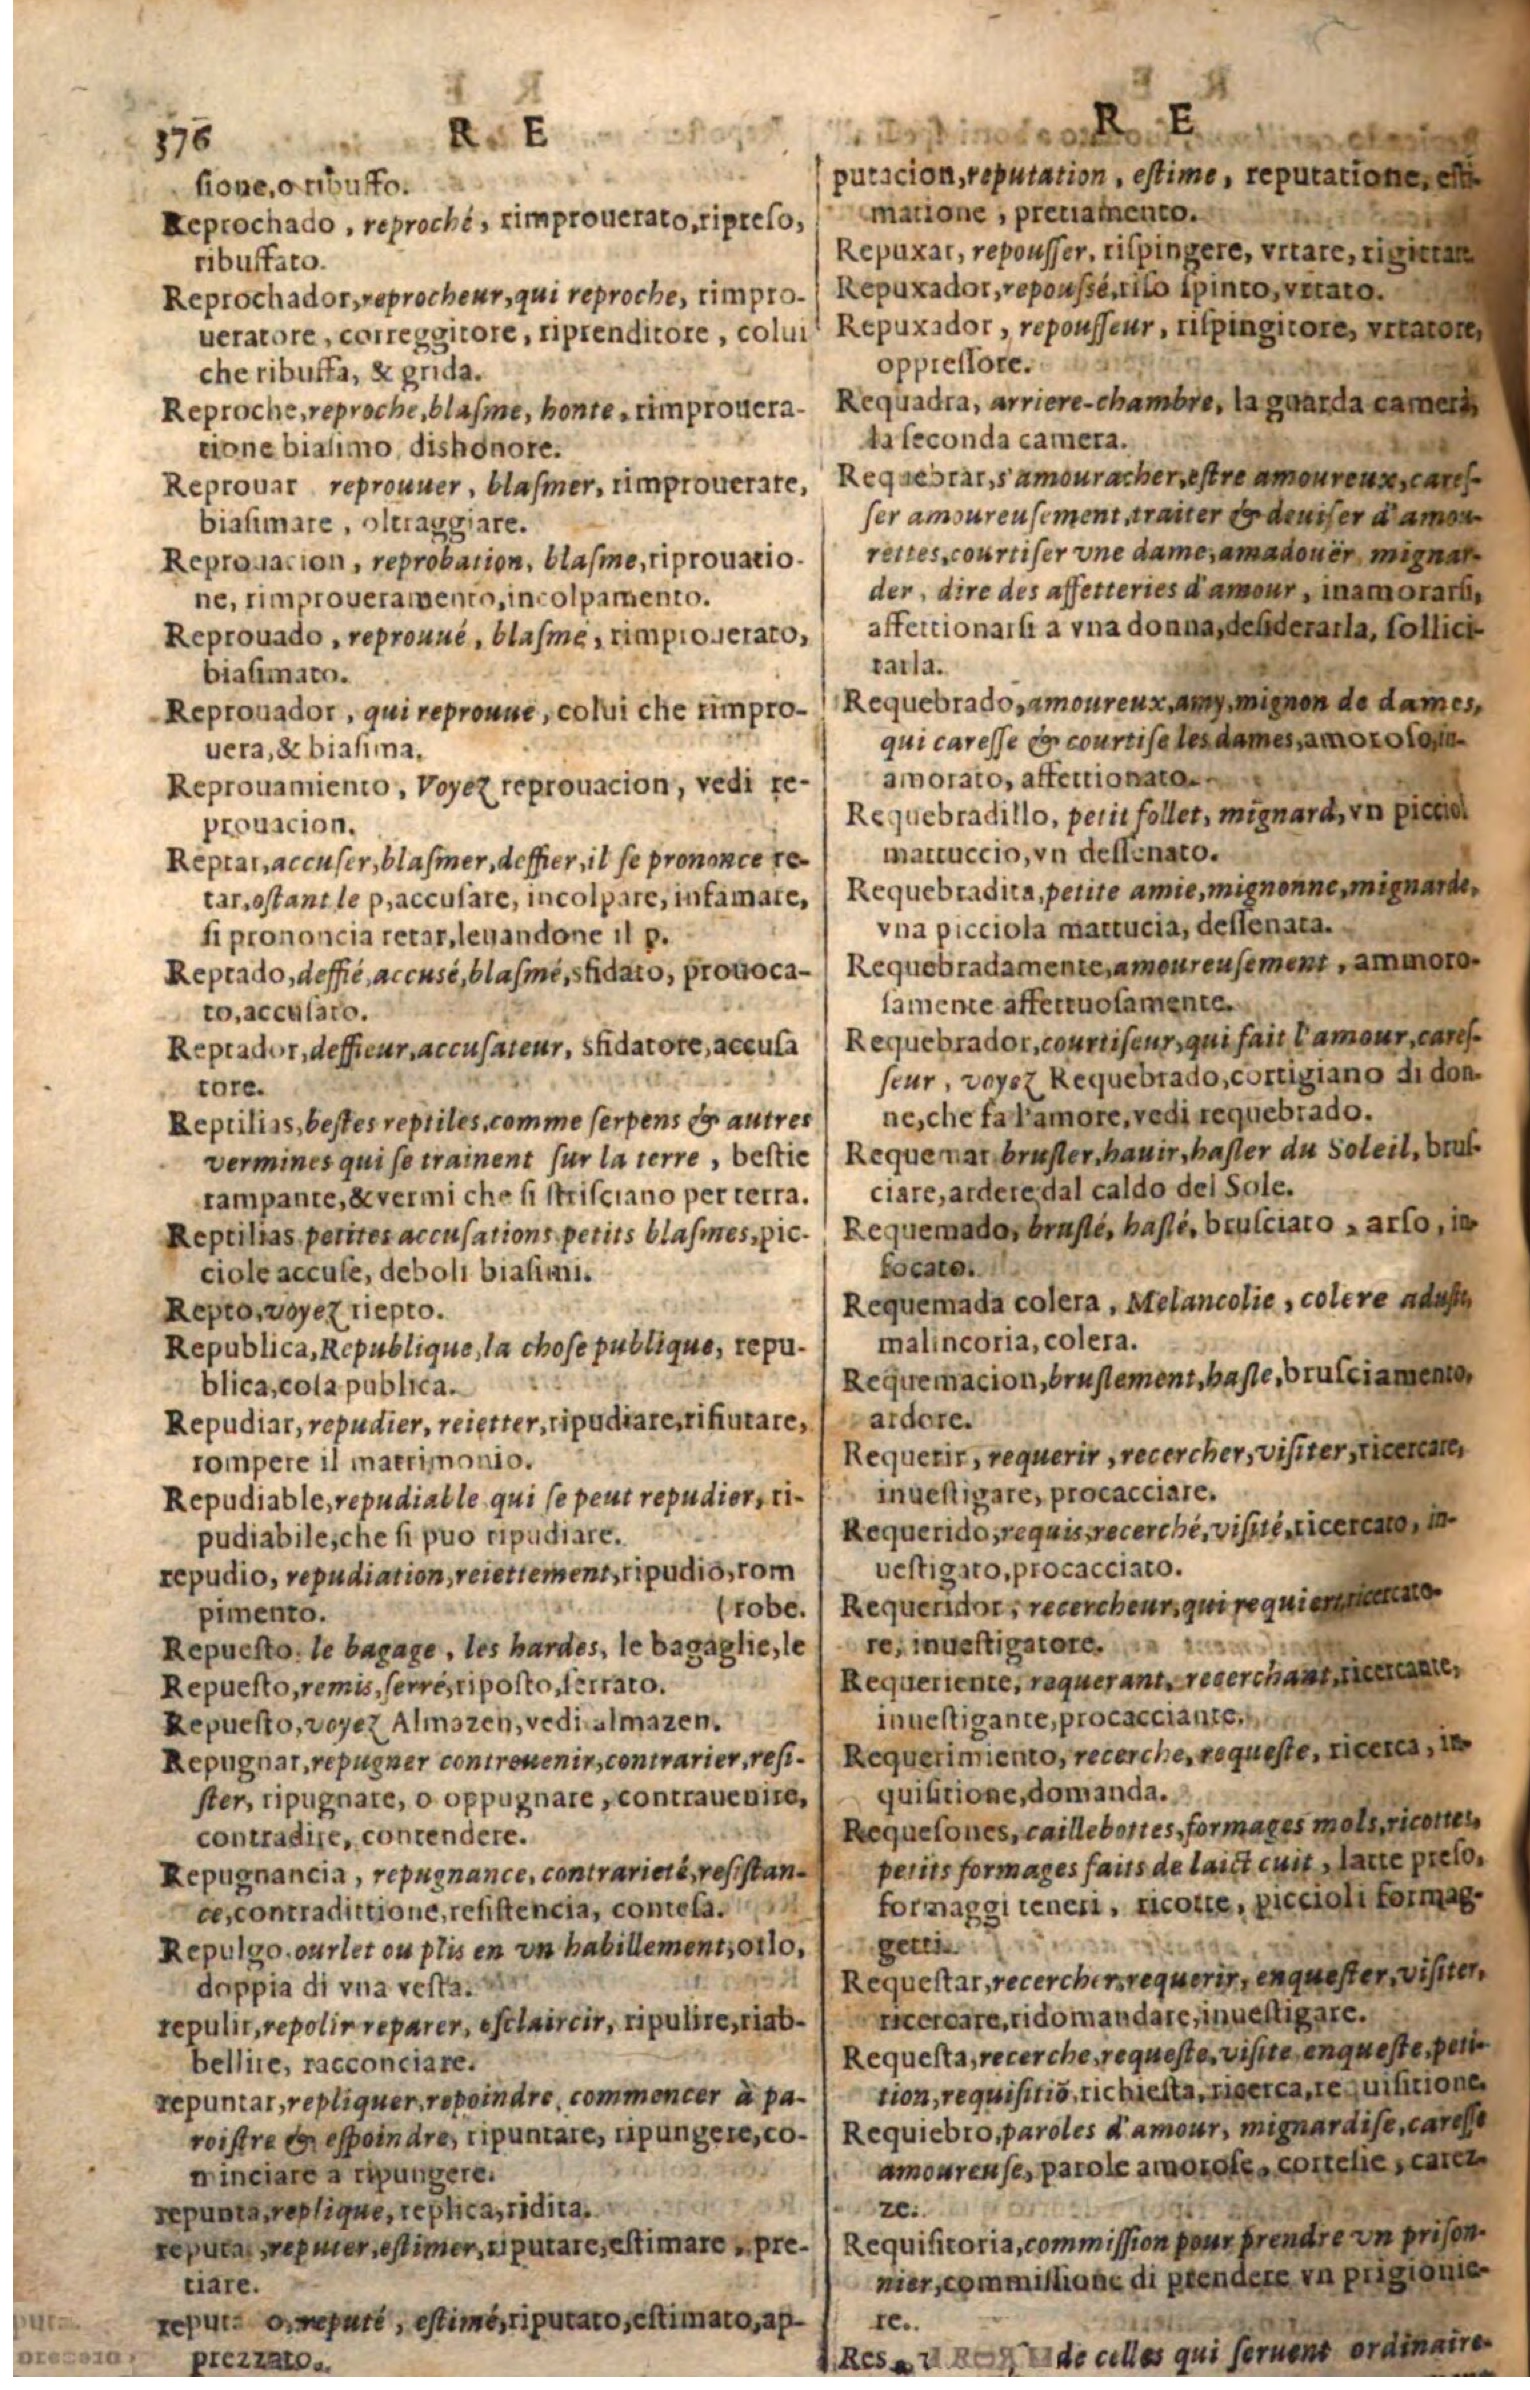 376 R E
sione, o ribuffo.
Reprochado, reproché, rimprouerato, ripreso,
ribuffato.
Reprochador, reprocheur, qui reproche, rimpro-
ueratore, correggitore, riprenditore, colui
che ribuffa, & grida.
Reproche, reproche, blasme, honte, rimprouera-
tione biasimo, dishonore.
Reprouar reprouuer, blasmer, rimprouerare,
biasimare, oltraggiare.
Reprouacion, reprobation, blasme, riprouatio-
ne, rimproueramento, incolpamento.
Reprouado, reprouué, blasmé, rimprouerato,
biasimato.
Reprouador, qui reprouue, colui che rimpro-
uera, & biasima.
Reprouamiento, Voyez reprouacion, vedi re-
prouacion.
Reptar, accuser, blasmer, deffier, il se prononce re-
tar, ostant le p, accusare, incolpare, infamare,
si prononcia retar, leuandone il p.
Reptado, deffié, accusé, blasmé, sfidato, prouoca-
to, accusato.
Reptador, deffieur, accusateur, sfidatore, accusa
tore.
Reptilias, bestes reptiles, comme serpens & autres
vermines qui se trainent sur la terre, bestie
rampante, & vermi che si strisciano per terra.
Reptilias petites accusations petits blasmes, pic-
ciole accuse, deboli biasimi.
Repto, voyez riepto.
Republica, Republique, la chose publique, repu-
blica, cosa publica.
Repudiar, repudier, reietter, ripudiare, rifiutare,
rompere il matrimonio.
Repudiable, repudiable qui se peut repudier, ri-
pudiabile, che si puo ripudiare.
repudio, repudiation, reiettement, ripudio, rom
pimento. (robe.
Repuesto. le bagage, les hardes, le bagaglie, le
Repuesto, remis, serré, riposto, serrato.
Repuesto, voyez Almazen, vedi almazen.
Repugnar, repugner controuenir, contrarier, resi-
ster, ripugnare, o oppugnare, contrauenire,
contradire, contendere.
Repugnancia, repugnance, contrarieté, resistan-
ce, contradittione, resistencia, contesa.
Repulgo. ourlet ou plis en vn habillement, orlo,
doppia di vna vesta.
repulir, repolir reparer, esclaircir, ripulire, riab-
bellire, racconciare.
repuntar, repliquer, repoindre, commencer à pa-
roistre & espoindre, ripuntare, ripungere, co-
minciare a ripungere.
repunta, replique, replica, ridita.
reputar, reputer, estimer, riputare, estimare, pre-
tiare.
o, reputé, estimé, riputato, estimato, ap-
prezzato.
R E
putacion, reputation, estime, reputatione, esti-
matione, pretiamento.
Repuxar, repousser, rispingere, vrtare, rigittare
Repuxador, repoussé, riso spinto, vrtato.
Repuxador, repousseur, rispingitore, vrtatore,
oppressore.
Requadra, arriere-chambre, la guarda camera,
la seconda camera.
Requebrar, s'amouracher, estre amoureux, cares-
ser amoureusement, traiter & deuiser d'amou-
rettes, courtiser vne dame, amadouër mignar-
der, dire des affetteries d'amour, inamorarsi,
affettionarsi a vna donna, desiderarla, sollici-
tarla.
Requebrado, amoureux, amy, mignon de dames,
qui caresse & courtise les dames, amoroso, in-
amorato, affettionato.
Requebradillo, petit follet, mignard, vn picciol
mattuccio, vn dessenato.
Requebradita, petite amie, mignonne, mignarde,
vna picciola mattucia, dessenata.
Requebradamente, amoureusement, ammoro-
samente affettuosamente.
Requebrador, courtiseur, qui fait l'amour, cares-
seur, voyez Requebrado, cortigiano di don-
ne, che fa l'amore, vedi requebrado.
Requemar brusler, hauir, hasler du Soleil, brus-
ciare, ardere dal caldo del Sole.
Requemado, bruslé, haslé, brusciato, arso, in-
focato.
Requemada colera, Melancolie, colere aduste,
malincoria, colera.
Requemacion, bruslement, hasle, brusciamento,
ardore.
Requerir, requerir, recercher, visiter, ricercare,
inuestigare, procacciare.
Requerido, requis, recerché, visité, ricercato, in-
uestigato, procacciato.
Requeridor, recercheur, qui requiert, ricercato-
re, inuestigatore.
Requeriente, requerant, recerchant, ricercante,
inuestigante, procacciante.
Requerimiento, recerche, requeste, ricerca, in-
quisitione, domanda.
Requesones, caillebottes, formages mols, ricottes,
petits formages faits de laict cuit, latte preso,
formaggi teneri, ricotte, piccioli formag-
getti.
Requestar, recercher, requerir, enquester, visiter,
ricercare, ridomandare, inuestigare.
Requesta, recerche, requeste, visite enqueste, peti-
tion, requisitiō, richiesta, ricerca, requisitione.
Requiebro, paroles d'amour, mignardise, caresse
amoureuse, parole amorose, cortesie, carez-
ze.
Requisitoria, commission pour prendre vn prison-
nier, commissione di prendere vn prigionie-
re.
Res de celles qui seruent ordinaire-